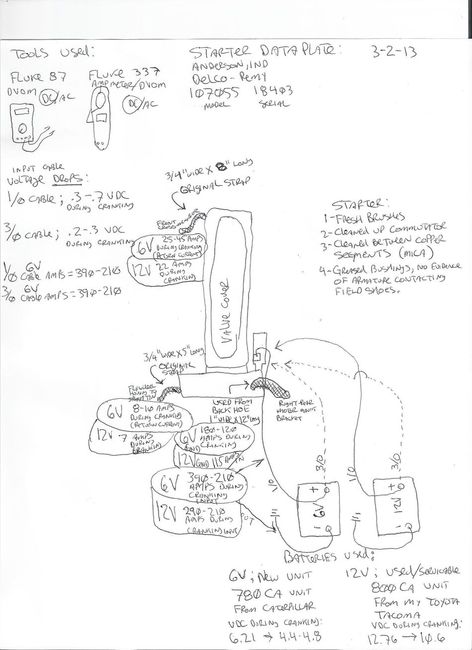 TOOLS USED:
FLUKE 87
DVOM DC/AC
FLUKE 337
AMPMETER/DVOM
DC/AC
STARTER DATA PLATE:
3-2-13
ANDERSON, IND
DELCO-REMY
107055 18403
MODEL SERIAL
INPUT CABLE
VOLTAGE DROPS:
1/0 CABLE; .3-.7 VDC
DURING CRANKING
3/0 CABLE; .2-.3 VDC
DURING CRANKING
6V
1/0 CABLE AMPS = 390-210
6V
3/0 CABLE AMPS = 390-210
3/4" WIDE X 8" LONG
ORIGINAL STRAP
FRONT
6V 25-45 AMPS
DURING CRANKING
(RETURN CURRENT)
12V 22 AMPS
DURING
CRANKING
VALVE COVER
STARTER:
1-FRESH BRUSHES
2-CLEANED UP COMMUTATOR
3-CLEANED BETWEEN COPPER
SEGMENTS (MICA)
4-GREASED BUSHINGS, NO EVIDENCE
OF ARMATURE CONTACTING
FIELD SHOES.
3/4" WIDE X 5" LONG
ORIGINAL
STRAP
FLYWHEEL
HOUSING TO
6V 8-10 AMPS
DURING CRANKING
(RETURN CURRENT)
12V 7 AMPS
DURING
CRANKING
USED FROM
BACK HOE
1" WIDE X 12" LONG
RIGHT REAR
MOTOR MOUNT
BRACKET
6V 180-120
AMPS DURING
CRANKING
12V 115 AMPS
6V 390-210
AMPS DURING
CRANKING
INPUT
12V 290-210
AMPS DURING
CRANKING INPUT
1/0
3/0
1/0
3/0
+
6V
-
+
12V
-
BATTERIES USED:
6V; NEW UNIT
780 CA UNIT
FROM CATERPILLAR
VDC DURING CRANKING:
6.21 → 4.4-4.8
12V; USED/SERVICABLE
800 CA UNIT
FROM MY TOYOTA
TACOMA
VDC DURING CRANKING:
12.76 → 10.6